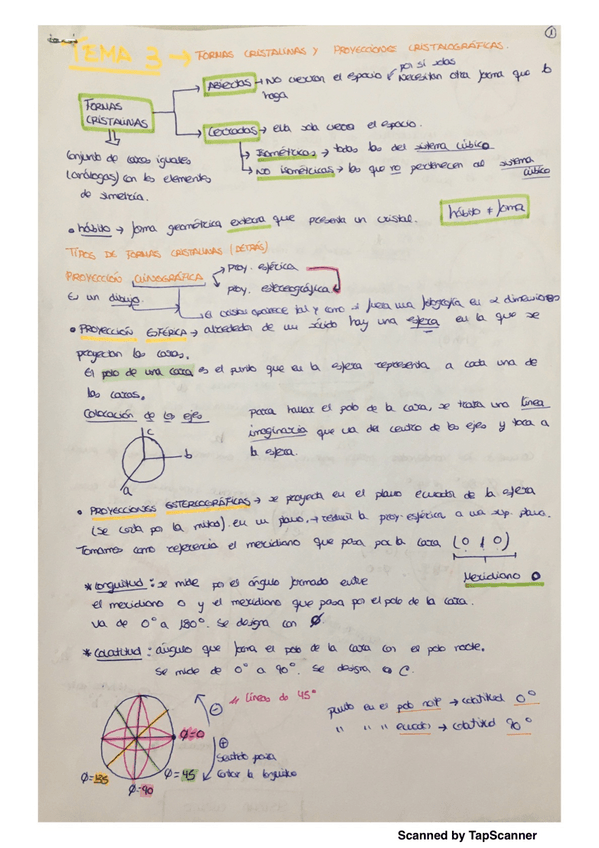 1
TEMA 3 → FORMAS CRISTALINAS Y PROYECCIONES CRISTALOGRÁFICAS.
FORMAS CRISTALINAS
Abiertas → No cierran el espacio por sí solas
Necesitan otra forma que lo haga
Cerradas → ella sola cierra el espacio.
Isométricas → todas las del sistema cúbico
No isométricas → las que no pertenecen al sistema cúbico
Conjunto de caras iguales
(análogas) con los elementos
de simetría.
• hábito → forma geométrica externa que presenta un cristal.
hábito ≠ forma
TIPOS DE FORMAS CRISTALINAS (DETRÁS)
PROYECCIÓN CLINOGRÁFICA
Proy. esférica
Proy. estereográfica
Es un dibujo.
el cristal aparece tal y como si fuera una fotografía en 2 dimensiones
• PROYECCIÓN ESFÉRICA → alrededor de un sólido hay una esfera en la que se
proyectan las caras.
El polo de una cara es el punto que en la esfera representa a cada una de
las caras.
Colocación de los ejes
c
b
a
para hallar el polo de la cara, se traza una línea
imaginaria que va del centro de los ejes y toca a
la esfera.
• PROYECCIONES ESTEREOGRÁFICAS → se proyecta en el plano ecuador de la esfera
(se corta por la mitad) en un plano. → reducir la proy. esférica a una sup. plana.
Tomamos como referencia el meridiano que pasa por la cara (0 1 0)
Meridiano 0
* Longuitud: se mide por el ángulo formado entre
el meridiano 0 y el meridiano que pasa por el polo de la cara.
va de 0° a 180°. Se designa con Ø
* Colatitud: ángulo que forma el polo de la cara con el polo norte.
Se mide de 0° a 90°. Se designa
# líneas de 45°
⊖
⊕
Sentido para
contar la longuitud
Ø=0
Ø=45
Ø=90
Ø=135
punto en el polo norte → colatitud 0°
" " " ecuador → colatitud 90°
Scanned by TapScanner